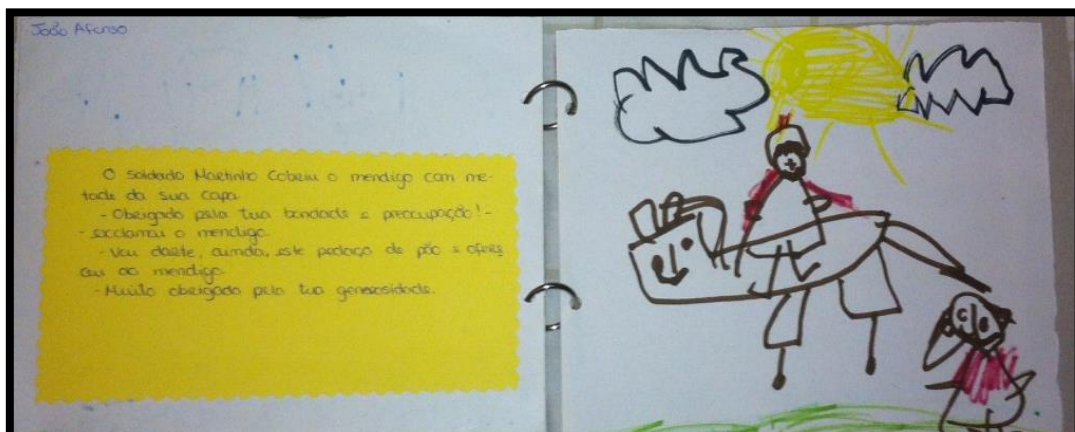 João Afonso
O soldado Martinho Cobriu o mendigo com me-
tade da sua capa.
- Obrigado pela tua bondade e preocupação! -
- exclamou o mendigo.
- Vou darte, ainda, este pedaço de pão e ofere
ceu ao mendigo.
- Muito obrigado pela tua generosidade.